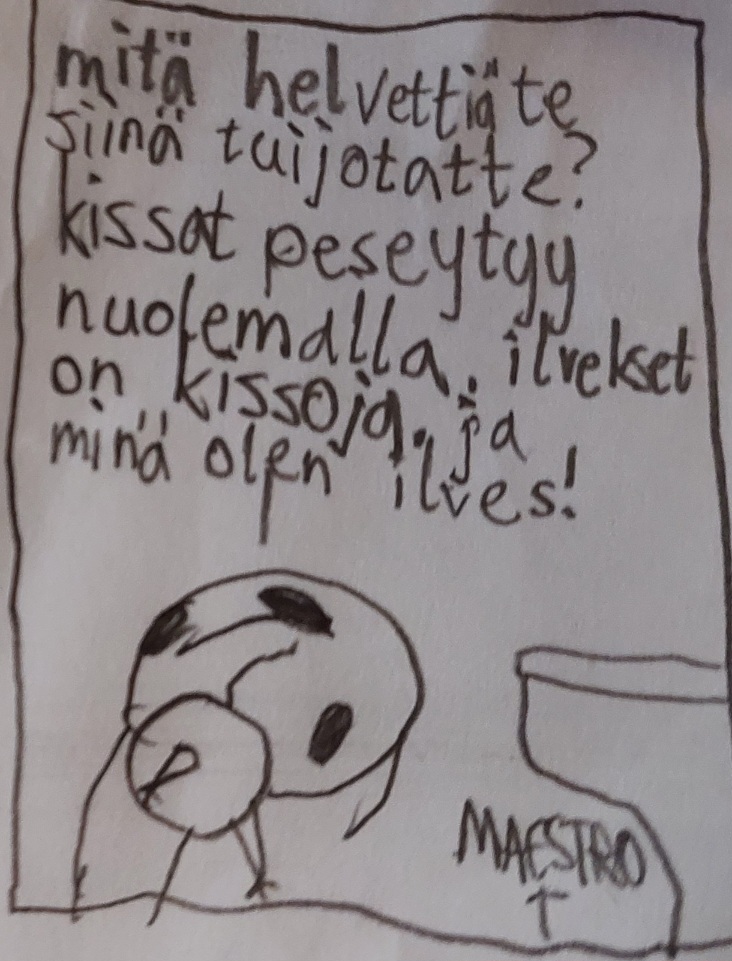 mitä helvettiä te
siinä tuijotatte?
kissat peseytyy
nuolemalla. ilvekset
on kissoja. ja
minä olen ilves!
MAESTRO
T